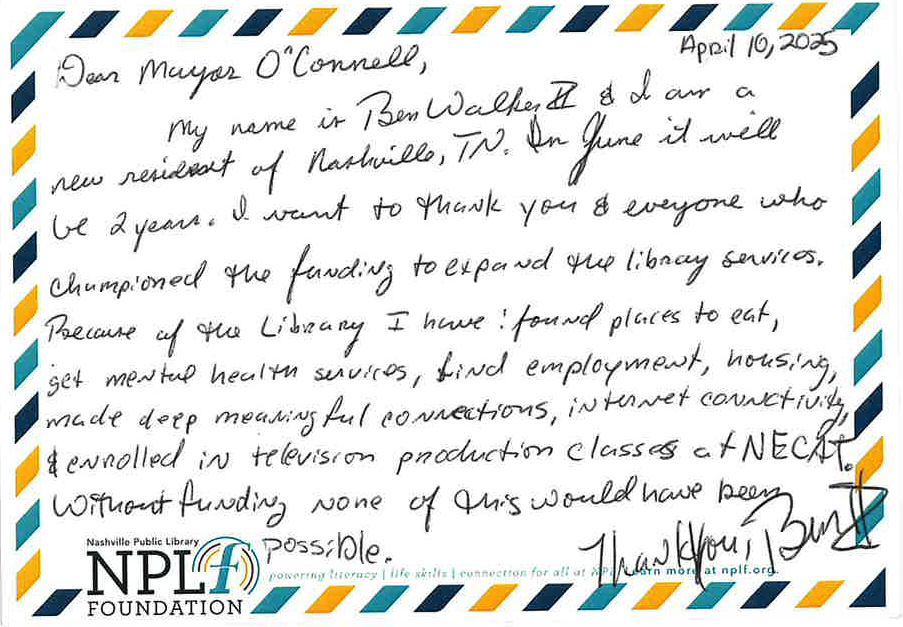 April 10, 2025
Dear Mayor O'Connell,
My name is Ben Walker II & I am a
new resident of Nashville, TN. In June it will
be 2 years. I want to thank you & everyone who
championed the funding to expand the library services.
Because of the Library I have: found places to eat,
get mental health services, find employment, housing,
made deep meaningful connections, internet connectivity,
& enrolled in television production classes at NECAT.
Without funding none of this would have been
possible.
Thank you, Ben II
Nashville Public Library
NPLf
FOUNDATION
powering literacy | life skills | connection for all at NPL. Learn more at nplf.org.